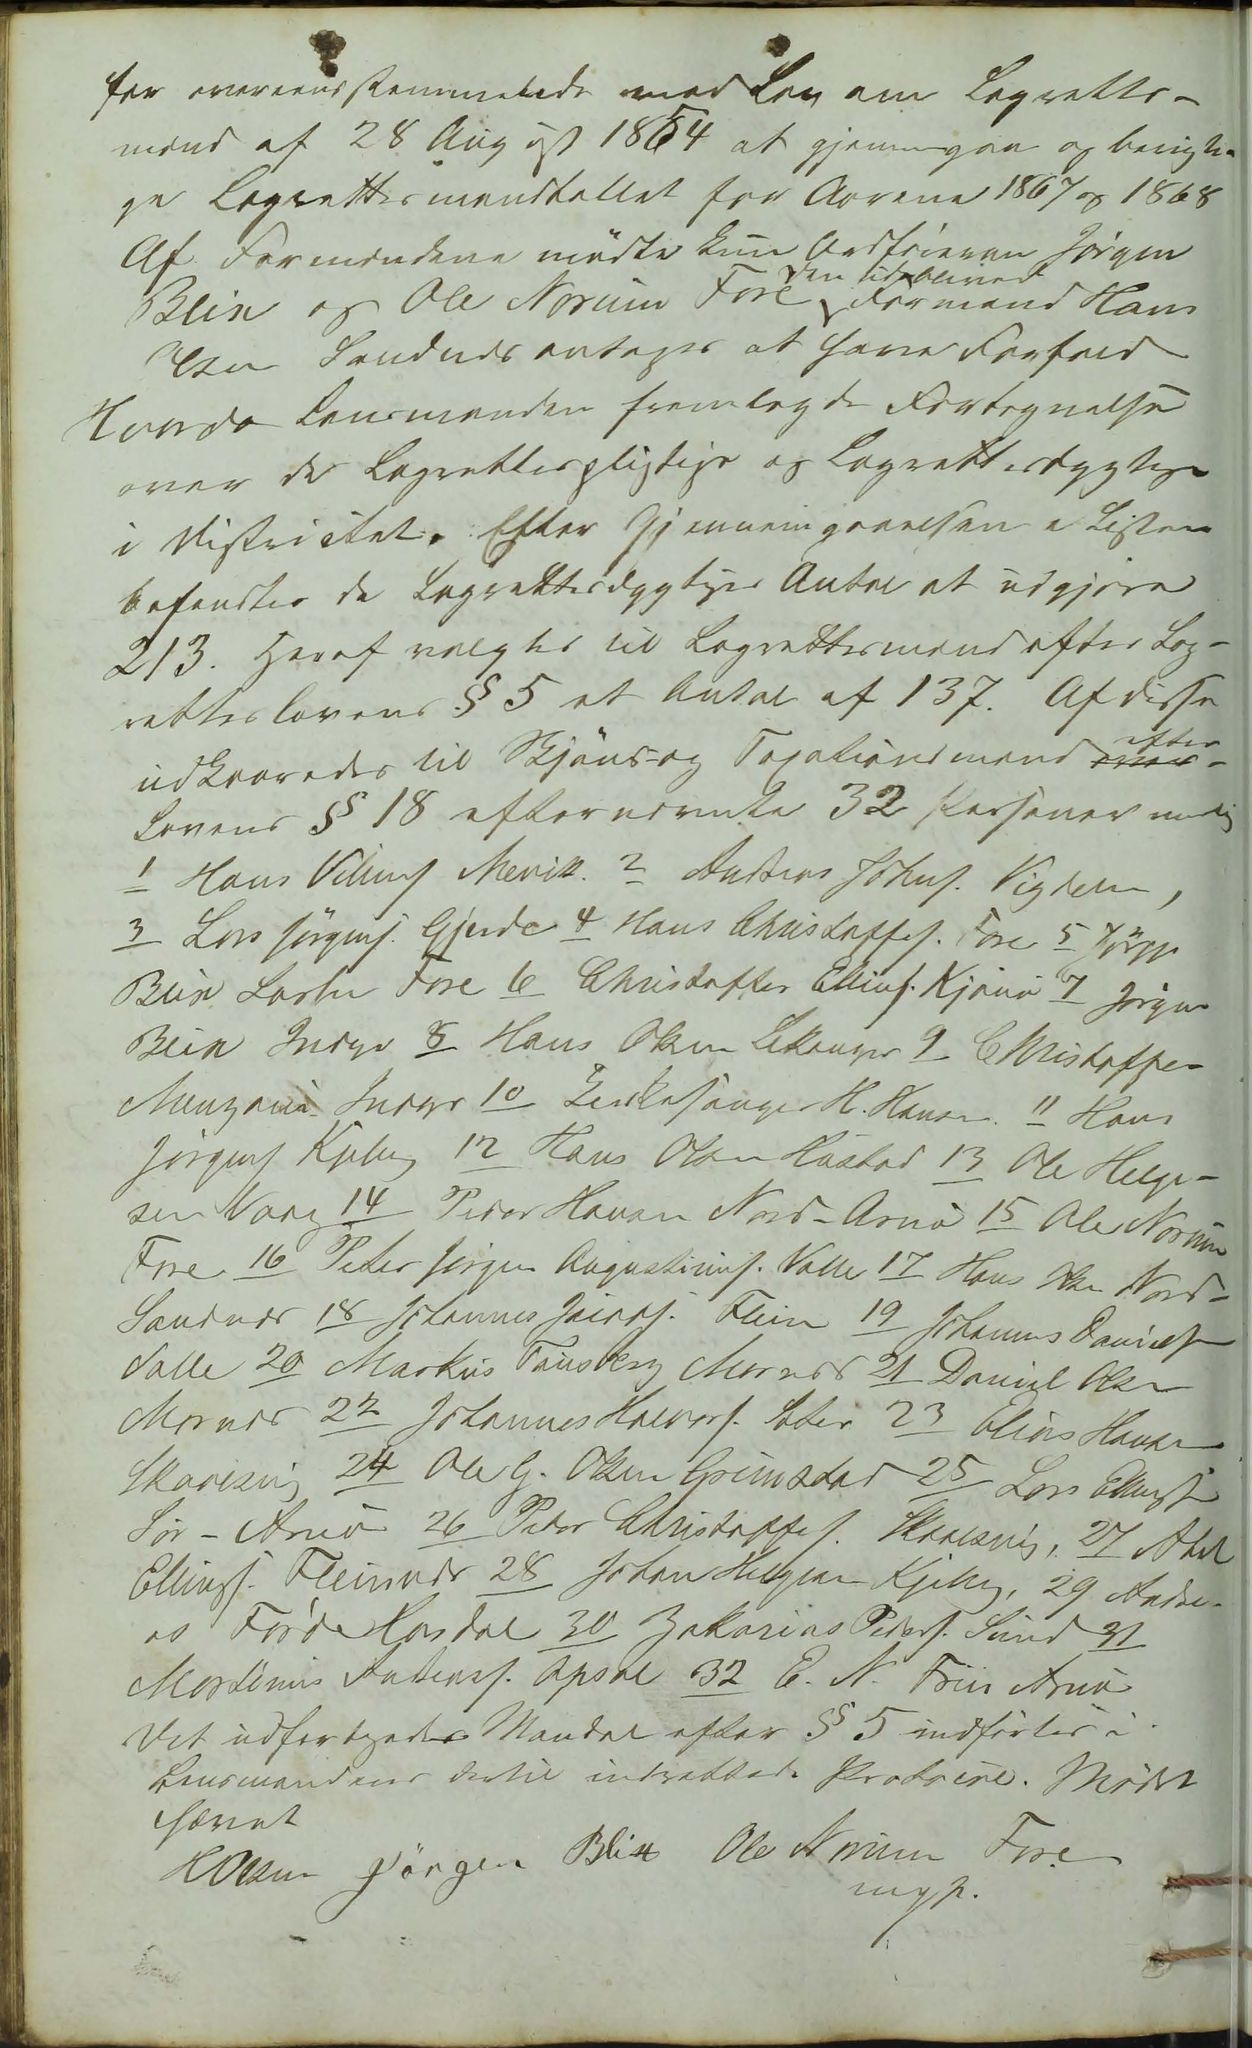 for overeensstemmelse med Lov om Lagrettes-
mænd af 28 August 1854 at gjennemgaa og berigti-
ge Lagrettesmandtallet for Aarene 1867 og 1868
Af Formændene mødte kun Ordføreren Jørgen
Blix og Ole Norum Fore, den udeblevne Formand Hans
Olsen Sandnes antages at have Forfald
Hvorda Lensmanden fremlagde Fortegnelse
over de Lagrettespligtige og Lagrettesdygtige
i Districtet. Efter Gjennemgaaelsen a Listen
befandtes de Lagrettesdygtiges Antal at udgjøre
213. Heraf valgtes til Lagrettesmænd efter Lag-
rettelovens § 5 et Antal af 137. Af disse
udkaaredes til Skjøns- og Taxationsmænd efter
Lovens §§ 18 efternævnte 32 Personer nemlig
1 Hans Mevik. 2 Andreas Johns. Vigdelen,
3 Lars Jørgens. Gjerde 4 Hans Christoffers. Fore 5 Jørgen
Blix Fore 6 Christoffer Ellings. Kjønø 7 Jørgen
Blix Indyr 8 Hans Olsen 9 Christoffer
Indyr 10 Kirkesanger H. Hansen. 11 Hans
Jørgens Kjelling 12 Hans Olsen Hustad 13 Ole Helge-
sen Vaag 14 Peder Hansen Nord-Arnø 15 Ole Norum
Fore 16 Peter Jørgen Augustinus. Valle 17 Hans Olsen Nord-
Sandnes 18 Johannes Flein 19 Johannes Daniels
Valle 20 Markus Tønsberg Mornes 21 Daniel Olsen
Mornes 22 Johannes Halvors. 23 Elias Hansen
Skauksvig 24 Ole G. Olsen Grimstad 25 Lars Ellings
Sør-Arnø 26 Peder Christoffes. Skauksvig, 27 Abel
Ellings. Fleinnes 28 Johan Helgesen Kjelling, 29 Andre-
as Førde Horsdal 30 Zakarias Peders. Sund 31
Mordinus Andreas. Opsal 32 E. N. Friis Arnø
Det udfærdigede Mandtal efter §§ 5 indførtes i
Lensmandens dertil indrettede Protocol. Mødet
hævet
H Olsen Jörgen Blix Ole Norum Fore
mgp.